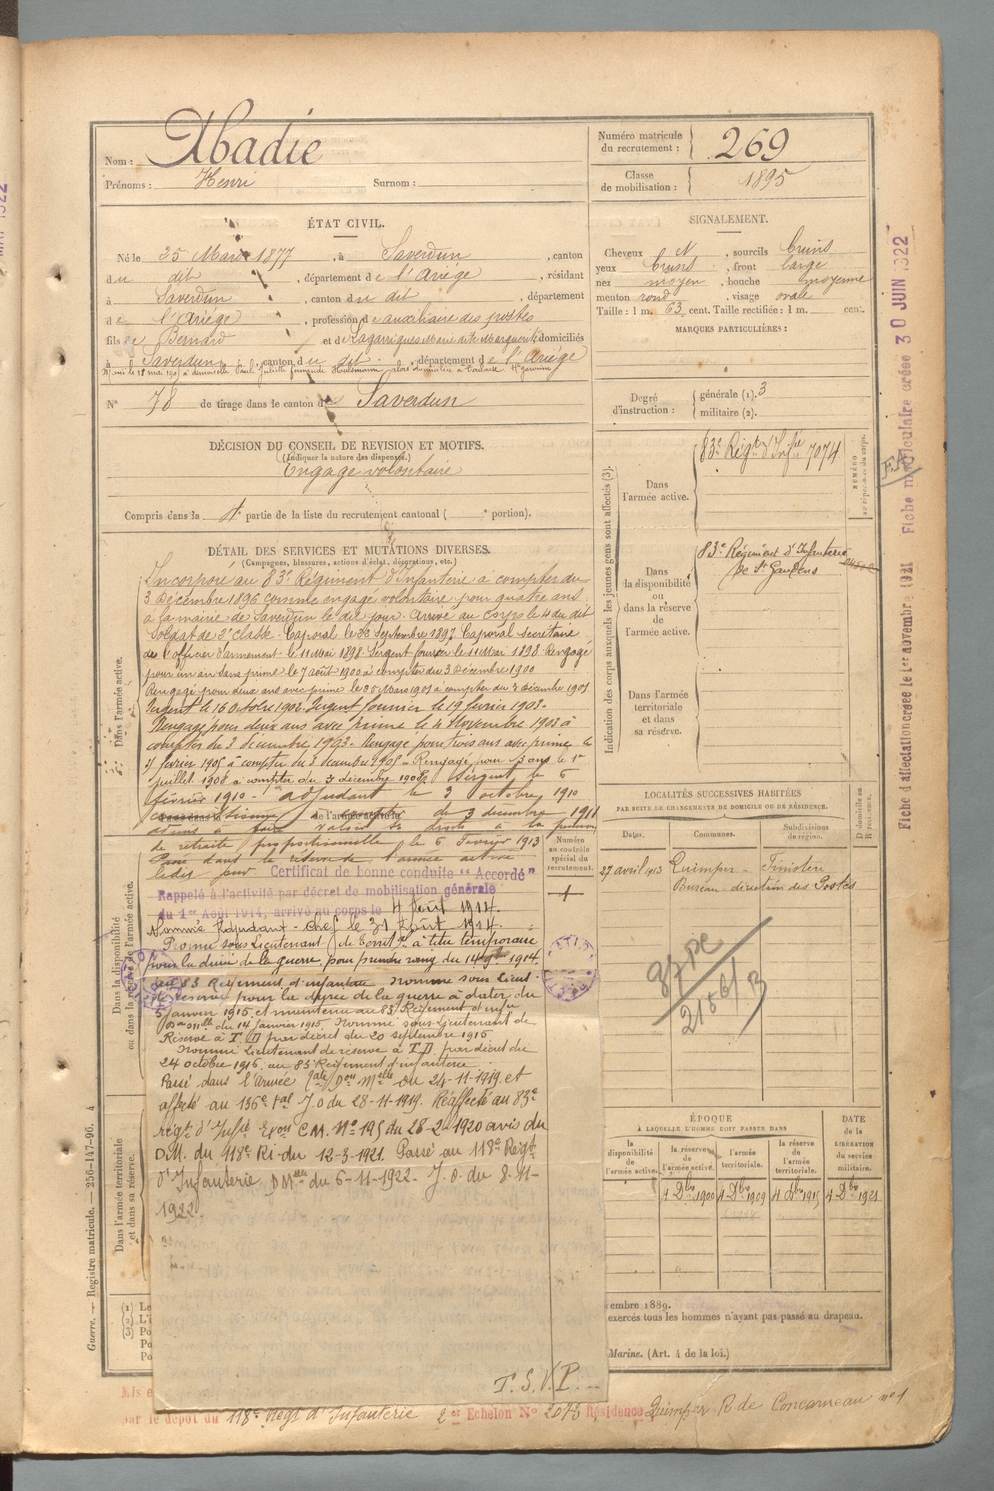 Nom : Abadie
Prénoms : Henri Surnom :
Numéro matricule du recrutement : 269
Classe de mobilisation : 1895
ÉTAT CIVIL.
Né le 25 Mars 1877, à Saverdun, canton
du dit, département de l'Ariège, résidant
à Saverdun, canton du dit, département
de l'Ariège, profession d'auxiliaire des postes
fils de Bernard et de Lagarrigue Marie dite Marguerite domiciliés
à Saverdun, canton du dit, département de l'Ariège
Marié le 18 mai 1907 à demoiselle Juliette
N° 78 de tirage dans le canton de Saverdun
SIGNALEMENT.
Cheveux N, sourcils bruns
yeux bruns, front large
nez moyen, bouche moyenne
menton rond, visage ovale
Taille : 1 m. 63 cent. Taille rectifiée : 1 m. cent.
MARQUES PARTICULIÈRES :
Degré d'instruction : générale (1). 3
militaire (2).
DÉCISION DU CONSEIL DE REVISION ET MOTIFS.
(Indiquer la nature des dispenses.)
Engagé volontaire
Compris dans la partie de la liste du recrutement cantonal ( portion).
DÉTAIL DES SERVICES ET MUTATIONS DIVERSES.
(Campagnes, blessures, actions d'éclat, décorations, etc.)
Dans l'armée active.
Incorporé au 83e Régiment d'Infanterie à compter du
3 Décembre 1896 comme engagé volontaire pour quatre ans
à la mairie de Saverdun le dit jour. Arrivé au corps le 4 du dit
Soldat de 2e classe. Caporal le 30 Septembre 1897 Caporal secrétaire
de l'officier d'armement le 11 Mai 1898 Sergent fourrier le 11 Mai 1898 Rengagé
pour un an sans prime le 7 août 1900 à compter du 3 Décembre 1900
Rengagé pour deux ans avec prime le 25 Mars 1901 à compter du 3 décembre 1901
Sergent le 16 Octobre 1902. Sergent fourrier le 19 février 1903.
Rengagé pour deux ans avec prime le 4 Novembre 1903 à
compter du 3 Décembre 1903. Rengagé pour trois ans avec prime le
février 1905 à compter du 3 décembre 1905 - Rengagé pour ans le 1er
juillet 1908 à compter du 3 décembre 1908. Sergent le 6
février 1910 - adjudant le 3 octobre 1910
de l'armée du 3 décembre 1911
admis à faire valoir ses droits à la pension
de retraite proportionnelle le 6 Février 1913
Passé dans la réserve de l'armée active
ledit jour Certificat de bonne conduite "Accordé"
Dans la disponibilité ou dans la réserve de l'armée active.
Rappelé à l'activité par décret de mobilisation générale
du 1er Août 1914, arrivé au corps le 4 Août 1914.
Nommé Adjudant-Chef le 31 Août 1914.
Promu sous Lieutenant de à titre temporaire
pour la durée de la guerre, pour prendre rang du 14 1914
au 83 Régiment d'infanterie Nommé sous Lieut.
de réserve pour la durée de la guerre à dater du
5 janvier 1915 et maintenu au 83 Régiment d'infie
du 14 janvier 1915. Nommé sous-Lieutenant de
Réserve à T.D par décret du 20 septembre 1915
Nommé Lieutenant de réserve à T.D par décret du
24 octobre 1916 au 83 Régiment d'infanterie
Passé dans l'Armée du 24-11-1919 et
affecté au 136e J.O du 28-11-1919. Réaffecté au 83e
régt d'Infie C.M. No 195 du 28-2-1920 avis du
D.M. du 118e RI du 12-3-1921. Passé au 118e Régt
d'Infanterie D Melle du 6-11-1922. J.O. du 8-11-
1922
T. S. V. P. ...
Dans l'armée territoriale et dans sa réserve.
Numéro au contrôle spécial du recrutement.
Indication des corps auxquels les jeunes gens sont affectés (3).
Dans l'armée active.
83e Régt d'Infie 7074
NUMÉRO
Dans la disponibilité ou dans la réserve de l'armée active.
83e Régiment d'Infanterie
de St Gaudens
Dans l'armée territoriale et dans sa réserve.
LOCALITÉS SUCCESSIVES HABITÉES
PAR SUITE DE CHANGEMENTS DE DOMICILE OU DE RÉSIDENCE.
Dates. Communes. Subdivisions de région. D domicile ou R résidence.
27 avril 1913 Quimper - Finistère
Bureau - direction des Postes
ÉPOQUE
À LAQUELLE L'HOMME DOIT PASSER DANS
la disponibilité de l'armée active. la réserve de l'armée active. l'armée territoriale. la réserve de l'armée territoriale.
DATE de la LIBÉRATION du service militaire.
4 Dbre 1900 4 Dbre 1909 4 Dbre 1915 4 Dbre 1921
embre 1889.
exercés tous les hommes n'ayant pas passé au drapeau.
Marine. (Art. 4 de la loi.)
par le dépôt du 118e Régt d'Infanterie 2e Echelon N° 2075 Résidence Quimper R de Concarneau n° 1
Guerre. — Registre matricule. — 256-147-96. 4
Fiche d'affectation créée le 1er novembre 1921 Fiche matriculaire créée 30 JUIN 1922